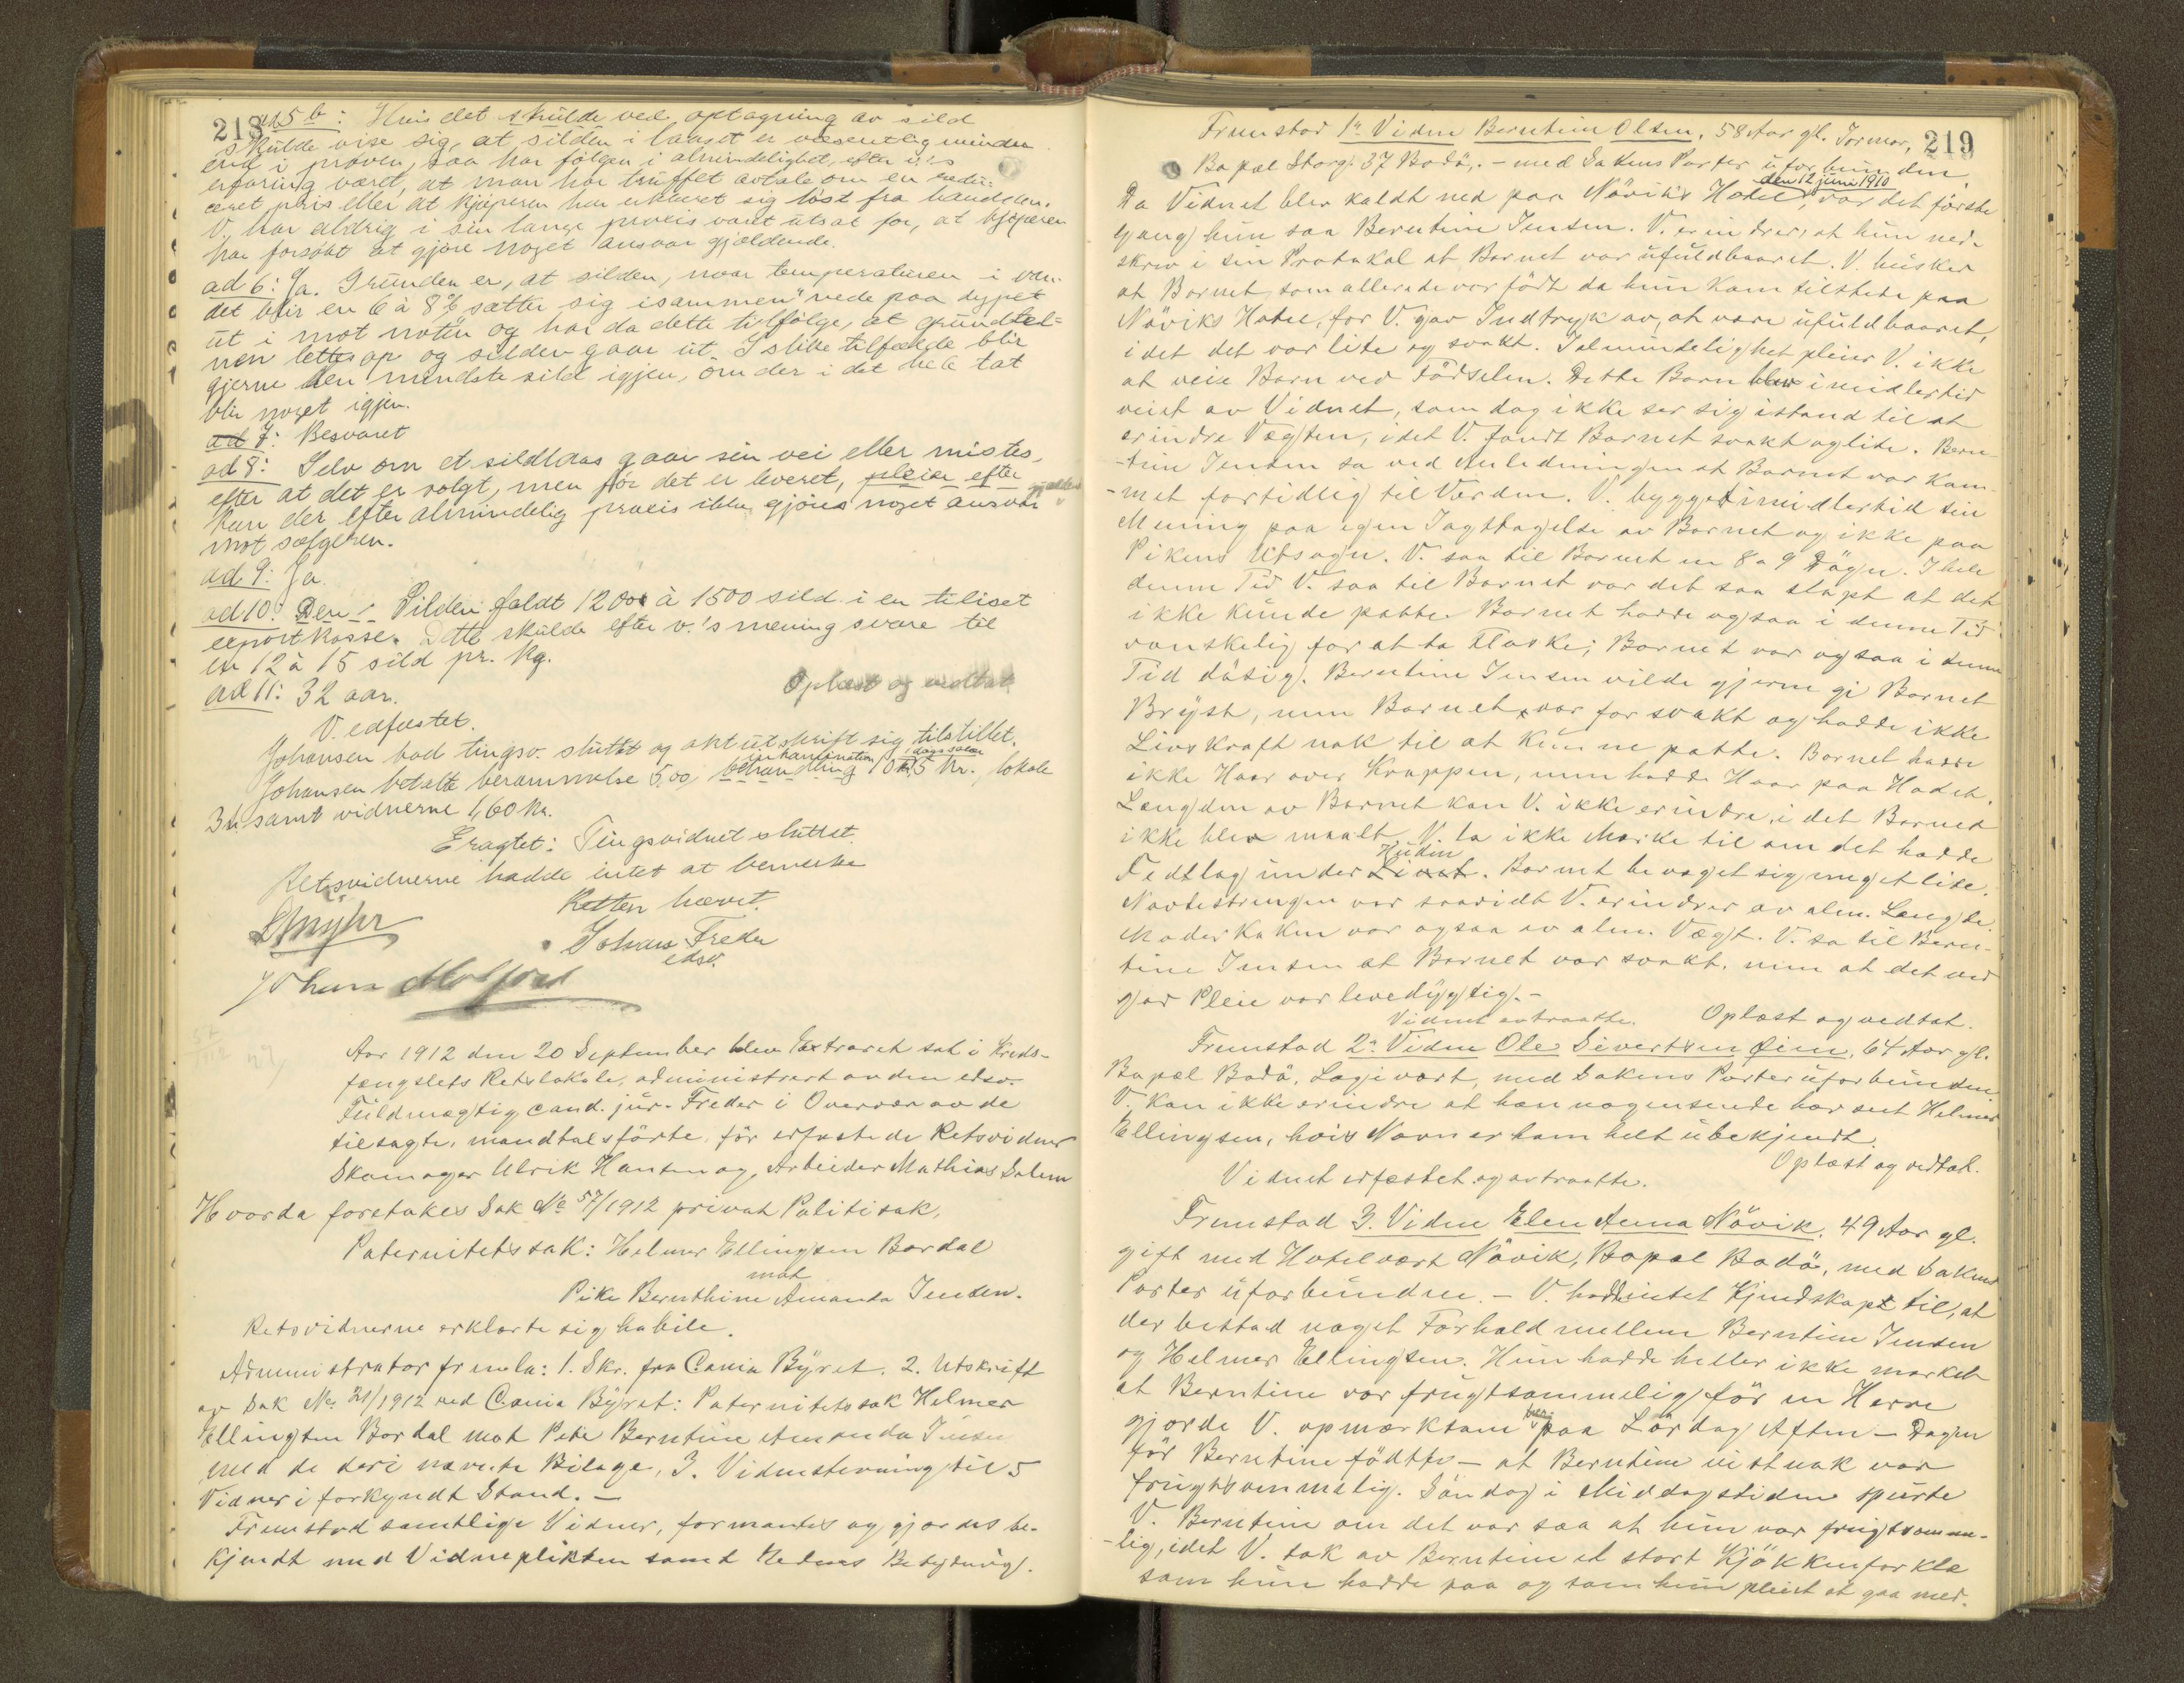 218
ad 5 b: Hvis det skulde ved optagning av sild
skulde vise sig, at silden i laaset er væsentlig mindre
end i prøven, saa har følgen i almindelighet, efter v.'s
erfaring været, at man har truffet avtale om en redu-
ceret pris eller at kjøperen har erklæret sig løst fra handelen.
V. har aldrig i sin lange praxis været utsat for, at kjøperen
har forsøkt at gjøre noget ansvar gjældende.
ad 6: Ja. Grunden er, at silden, naar temperaturen i van-
det blir en 6 à 8° sætter sig isammen" nede paa dypet
ut i mot noten og har da dette tilfølge, at grundtel-
nen lettes op og silden gaar ut. I slike tilfælde blir
gjerne den mindste sild igjen, om der i det hele tat
blir noget igjen.
ad 7: Besvaret
ad 8: Selv om et sildlaas gaar sin vei eller mistes,
efter at det er solgt, men før det er leveret, pleier efter
kan der efter almindelig praxis ikke gjøres noget ansvar gjældende
mot sælgeren.
ad 9: Ja.
ad 10: Den Silden faldt 1200 à 1500 sild i en tiliset
exportkasse. Dette skulde efter v.'s mening svare til
en 12 à 15 sild pr. kg.
ad 11: 32 aar.
Oplæst og vedtat
V. edfæstet.
Johansen bad tingsv. sluttet og aktutskrift sig tilstillet.
Johansen betalte berammelse 5,00, behandling 10 kr., lokale
3 kr samt vidnerne 1,60 kr.
Eragtet: Tingsvidnet sluttet.
Retsvidnerne hadde intet at bemerke
Retten hævet.
Johans Freder
edsv.
Aar 1912 den 20 September blev Extraret sat i Kreds-
fængslets Retslokale, administrert av den edsv.
Fuldmægtig cand. jur. Freder i Overvær av de
tilsagte, mandtalsførte, før edfæstede Retsvidner
Skomager Ulrik Hansen og Arbeider Mathias Salem
Hvorda foretokes Sak No 57/1912 privat Politisak,
Paternitetssak: Helmer Ellingsen Bardal
mot
Pike Bernthine Amanda Jensen.
Retsvidnerne erklærte sig habile.
Administrator fremla: 1. Skr. fra Crania Byret. 2. Utskrift
av Sak No 31/1912 ved Crania Byret: Paternitetssak Helmer
Ellingsen Bardal mot Pike Berntine Amanda Jensen
med de deri nævnte Bilage, 3. Vidnestevning til 5
Vidner i forkyndt Stand. —
Fremstod samtlige Vidner, formantes og gjordes be-
kjendt med Vidneplikten samt Edens Betydning.
219
Fremstod 1ste Vidne Berntine Olsen, 58 Aar gl. Jormor,
Bopæl Storg. 37 Bodø, — med Sakens Parter uforbunden.
Da Vidnet blev kaldt ned paa Növiks Hotel, den 12 juni 1910 var det første
Gang hun saa Berntine Jensen. V. erindrer, at hun ned-
skrev i sin Protokol at Barnet var ufuldbaaret. V. husker
at Barnet, som allerede var født da hun kom tilstede paa
Növiks Hotel, for V. gav Indtryk av, at være ufuldbaaret,
i det det var lite og svakt. I almindelighet pleier V. ikke
at veie Barn ved Födselen. Dette Barn blev imidlertid
veiet av Vidnet, som dog ikke ser sig istand til at
erindre Vægten, idet V. fandt Barnet svakt og lite. Bern-
tine Jensen sa ved Anledningen at Barnet var kom-
met fortidlig til Verden. V. bygget imidlertid sin
Mening paa egen Iagttagelse av Barnet og ikke paa
Pikens Utsagn. V. saa til Barnet en 8 a 9 Dögn. I hele
denne Tid V. saa til Barnet var det saa slapt at det
ikke kunde patte. Barnet hadde ogsaa i denne Tid
vanskelig for at ta Flaske; Barnet var ogsaa i denne
Tid dösig. Berntine Jensen vilde gjerne gi Barnet
Bryst, men Barnet var for svakt og hadde ikke
Livskraft nok til at kunne patte. Barnet hadde
ikke Haar over Kroppen, men hadde Haar paa Hodet.
Længden av Barnet kan V. ikke erindre, i det Barnet
ikke blev maalt. V. la ikke Mærke til om det hadde
Fedtlag under Livet Huden. Barnet bevæget sig meget lite.
Navlestrengen var saavidt V. erindrer av alm. Længde.
Moderkaken var ogsaa av alm. Vægt. V. sa til Bern-
tine Jensen at Barnet var svakt, men at det ved
god Pleie var levedygtig. —
Vidnet avtraatte. Oplæst og vedtat.
Fremstod 2det Vidne Ole Sivertsen Øien, 64 Aar gl.
Bopæl Bodø, Logivært, med Sakens Parter uforbunden.
V. kan ikke erindre at han nogensinde har seet Helmer
Ellingsen, hvis Navn er ham helt ubekjendt.
Oplæst og vedtat.
Vidnet edfæstet og avtraatte.
Fremstod 3. Vidne Elen Anna Növik, 49 Aar gl.
gift med Hotelvært Növik, Bopæl Bodö, med Sakens
Parter uforbunden. — V. hadde intet Kjendskap til, at
der bestod noget Forhold mellem Berntine Jensen
og Helmer Ellingsen. Hun hadde heller ikke merket
at Berntine var frugtsommelig för en Herre
gjorde V. opmærksom paa Lördag Aften — Dagen
för Berntine födtte — at Berntine vistnok var
frugtsommelig. Söndag i Middagstiden spurte
V. Berntine om det var saa at hun var frugtsomme-
lig, idet V. tok av Berntine et stort Kjökkenforklæ
som hun hadde paa og som hun pleiet at gaa med.